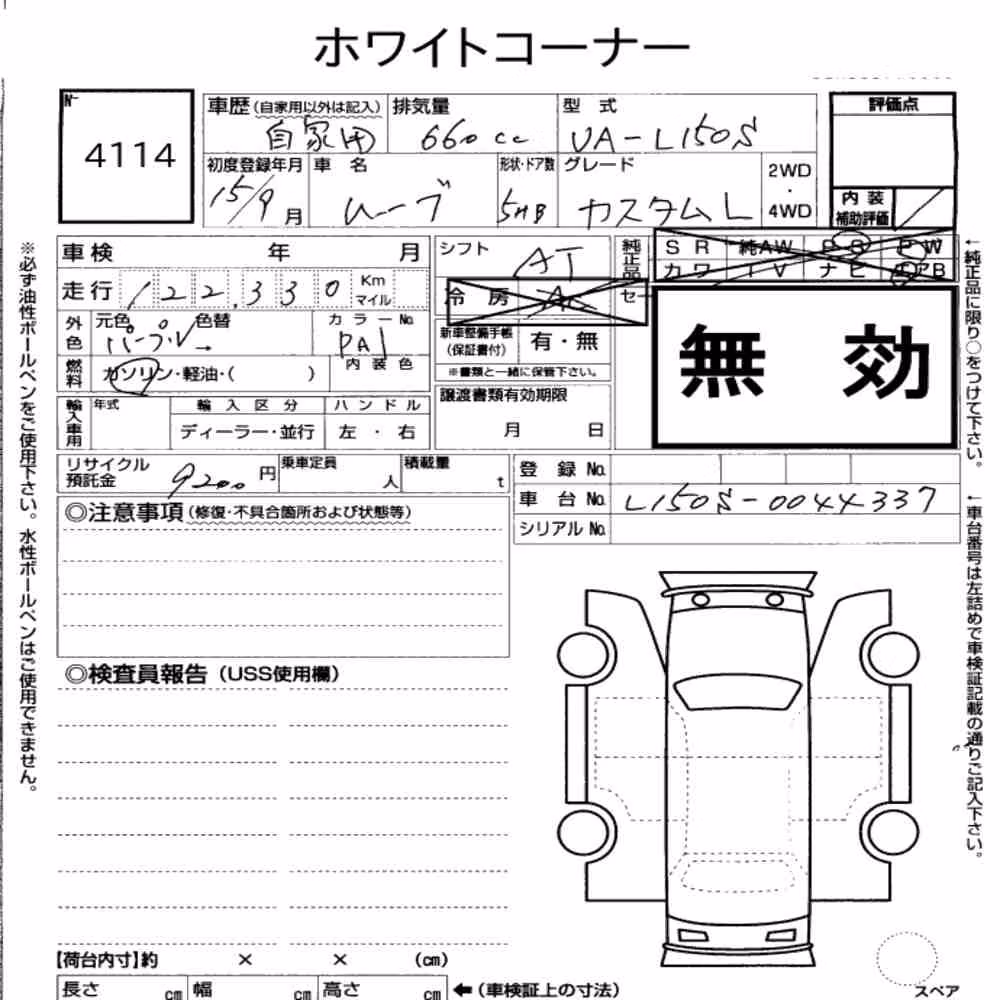 ホワイトコーナー
4114
車歴(自家用以外は記入) 排気量 型式 評価点
自家用 660cc UA-L150S
初度登録年月 車名 形状・ドア数 グレード 2WD・4WD 内装補助評価
15/9月 ムーブ 5HB カスタムL
車検 年 月 シフト AT 純正品 SR 純AW PS PW
走行 122,330 Km マイル 冷房 AC セー カワ TV ナビ エアB
外色 元色 パープル 色替→ カラーNo. PA1 新車整備手帳(保証書付) 有・無 無効
燃料 ガソリン・軽油・( ) 内装色 ※書類と一緒に保管下さい。
輸入車用 年式 輸入区分 ハンドル 譲渡書類有効期限
ディーラー・並行 左・右 月 日
リサイクル預託金 9200円 乗車定員 人 積載量 t 登録No.
◎注意事項(修復・不具合箇所および状態等) 車台No. L150S-0044337
シリアルNo.
◎検査員報告(USS使用欄)
【荷台内寸】約 × × (cm)
長さ cm 幅 cm 高さ cm ←(車検証上の寸法) スペア
※必ず油性ボールペンをご使用下さい。水性ボールペンはご使用できません。
←純正品に限り○をつけて下さい。
←車台番号は左詰めで車検証記載の通りご記入下さい。